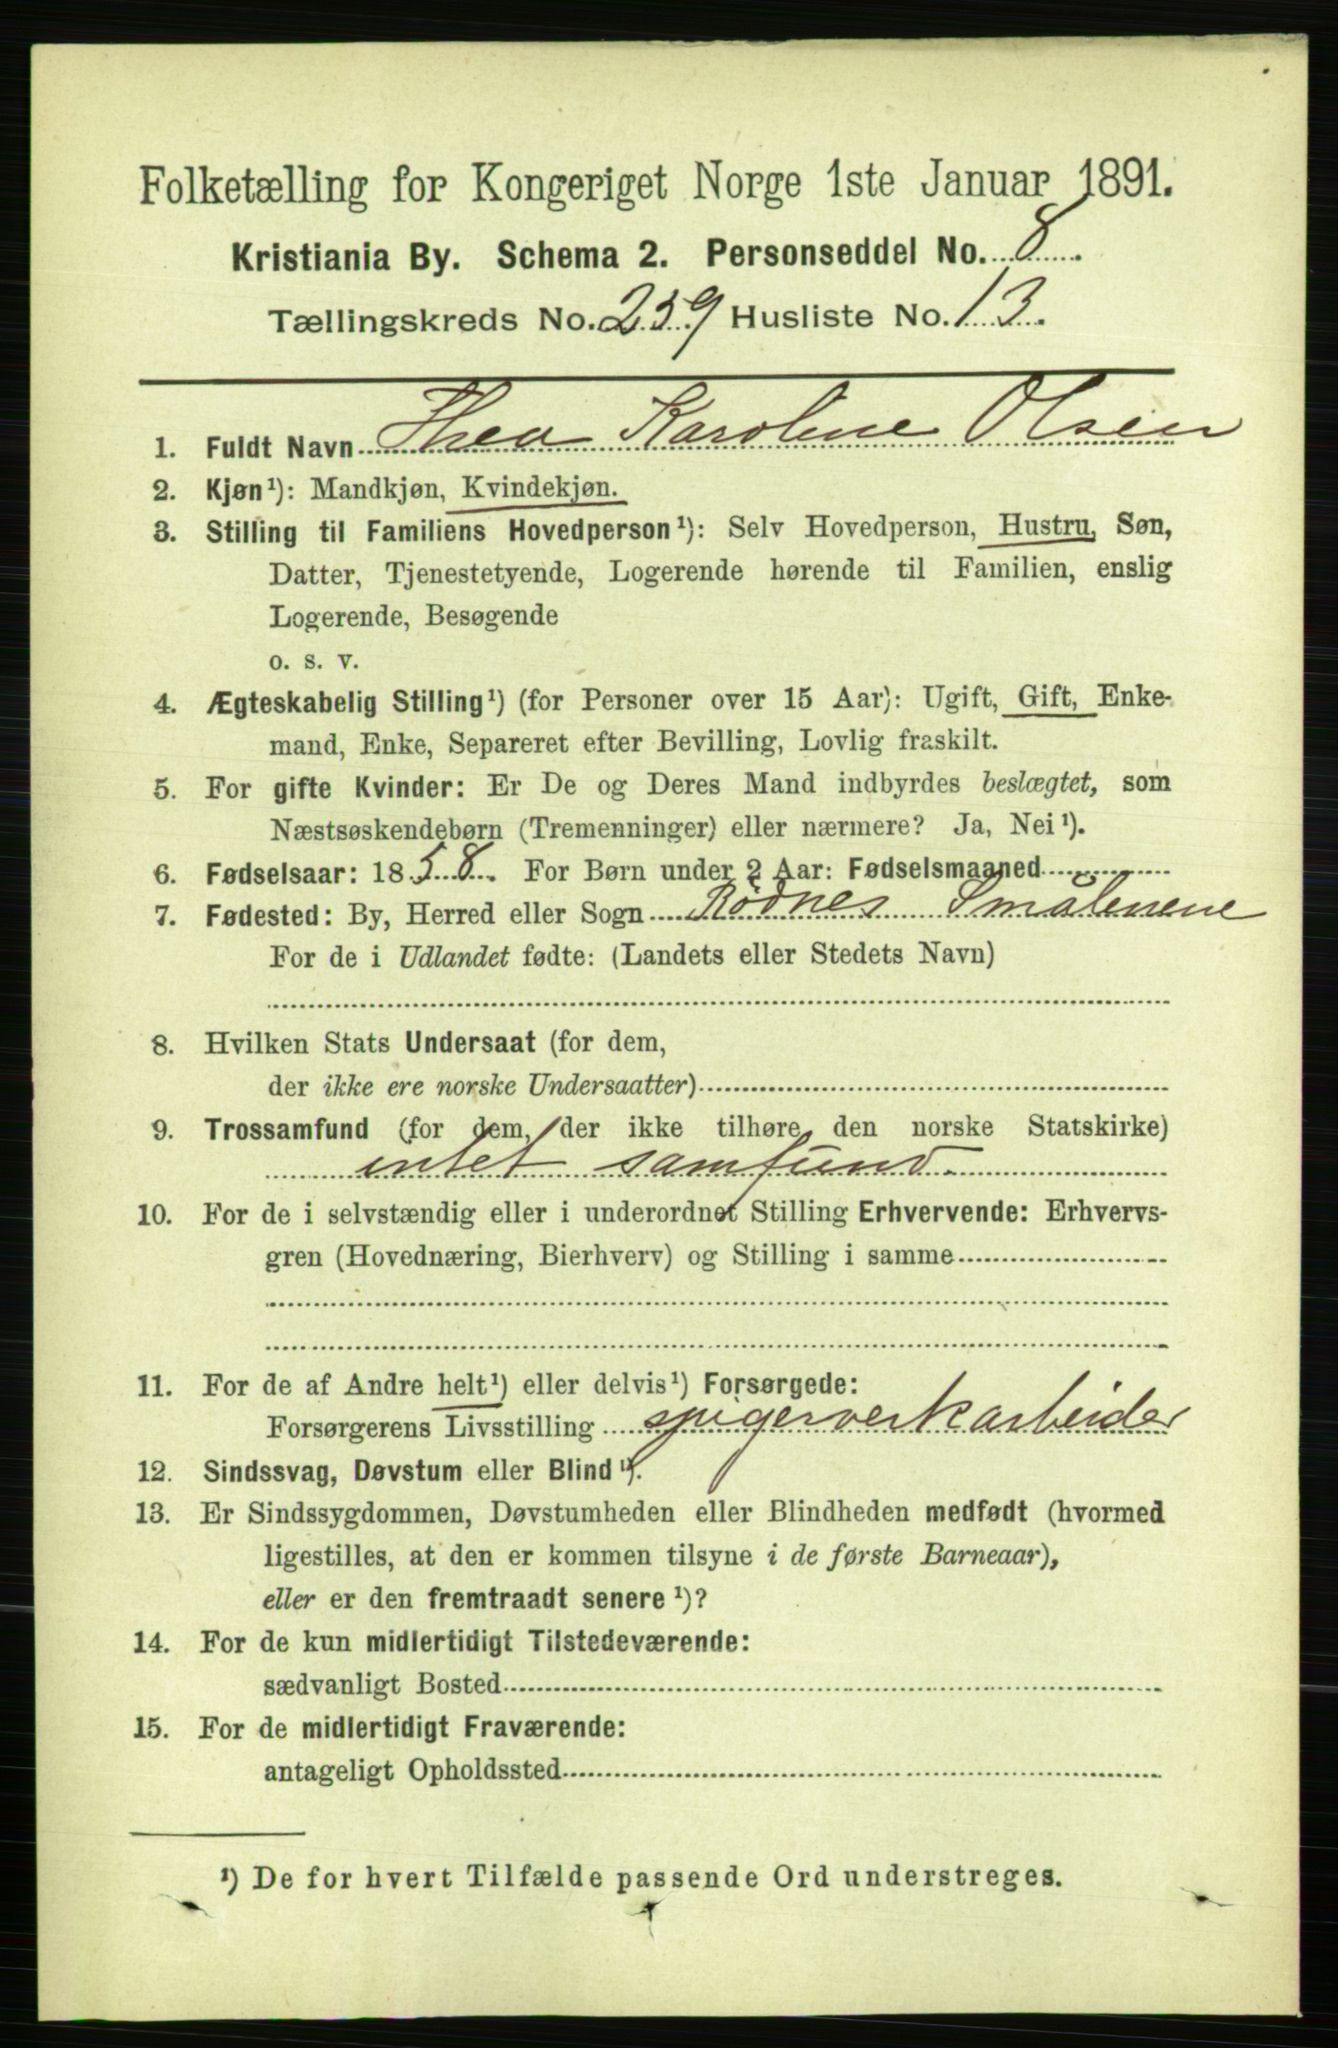 Folketælling for Kongeriget Norge 1ste Januar 1891.
Kristiania By. Schema 2. Personseddel No. 8.
Tællingskreds No. 259 Husliste No. 13.
1. Fuldt Navn Thea Karoline Olsen
2. Kjøn¹): Mandkjøn, Kvindekjøn.
3. Stilling til Familiens Hovedperson¹): Selv Hovedperson, Hustru, Søn,
Datter, Tjenestetyende, Logerende hørende til Familien, enslig
Logerende, Besøgende
o. s. v.
4. Ægteskabelig Stilling¹) (for Personer over 15 Aar): Ugift, Gift, Enke-
mand, Enke, Separeret efter Bevilling, Lovlig fraskilt.
5. For gifte Kvinder: Er De og Deres Mand indbyrdes beslægtet, som
Næstsøskendebørn (Tremenninger) eller nærmere? Ja, Nei¹).
6. Fødselsaar: 1858. For Børn under 2 Aar: Fødselsmaaned
7. Fødested: By, Herred eller Sogn Rödnes Smålenene
For de i Udlandet fødte: (Landets eller Stedets Navn)
8. Hvilken Stats Undersaat (for dem,
der ikke ere norske Undersaatter)
9. Trossamfund (for dem, der ikke tilhøre den norske Statskirke)
intet samfund.
10. For de i selvstændig eller i underordnet Stilling Erhvervende: Erhvervs-
gren (Hovednæring, Bierhverv) og Stilling i samme
11. For de af Andre helt¹) eller delvis¹) Forsørgede:
Forsørgerens Livsstilling spigerverkarbeider
12. Sindssvag, Døvstum eller Blind¹).
13. Er Sindssygdommen, Døvstumheden eller Blindheden medfødt (hvormed
ligestilles, at den er kommen tilsyne i de første Barneaar),
eller er den fremtraadt senere¹)?
14. For de kun midlertidigt Tilstedeværende:
sædvanligt Bosted
15. For de midlertidigt Fraværende:
antageligt Opholdssted
¹) De for hvert Tilfælde passende Ord understreges.